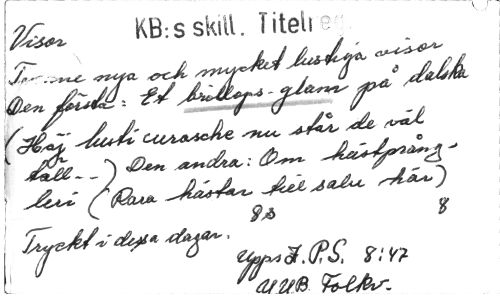 KB:s skill. Titelreg.
Visor
Tvenne nya och mycket lustiga visor
Den första: Et bröllops-glam på dalska
(Häj lusti curasche nu står de väl
tåll--) Den andra: Om hästprång-
leri (Rara hästar till salu här)
8s 8
Tryckt i dessa dagar.
Upps. F.P.S. 8:47
UUB Folkv.